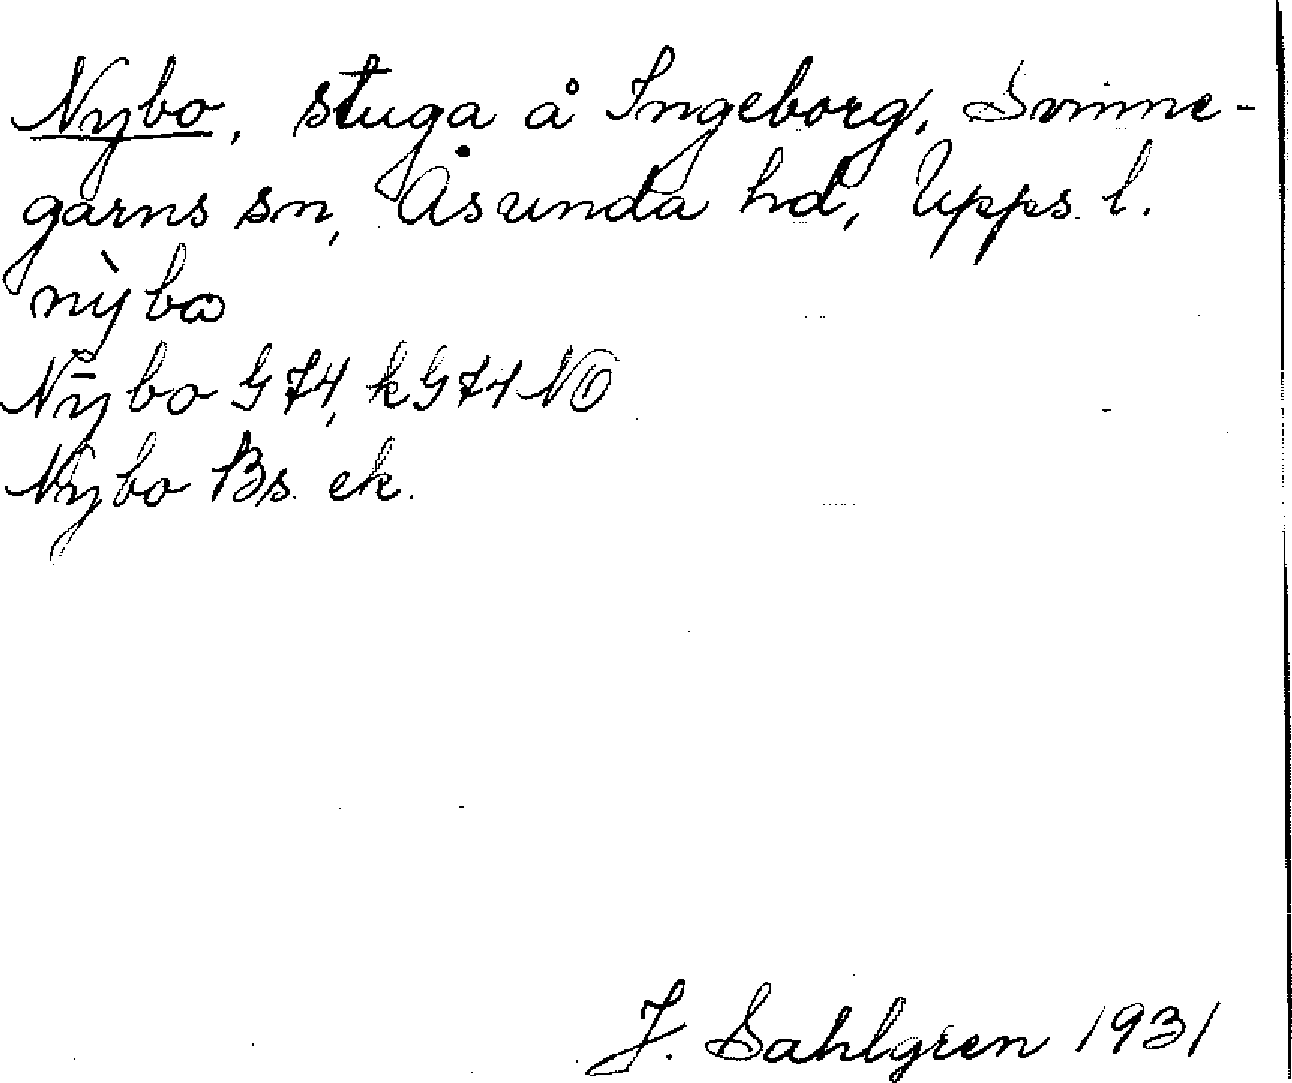 Nybo, stuga å Ingeborg, Svinne-
garns sn, Åsunda hd, Upps. l.
nỳbω
Nȳbo G 74, k G 74 NO
Nybo Bs. ek.
J. Sahlgren 1931